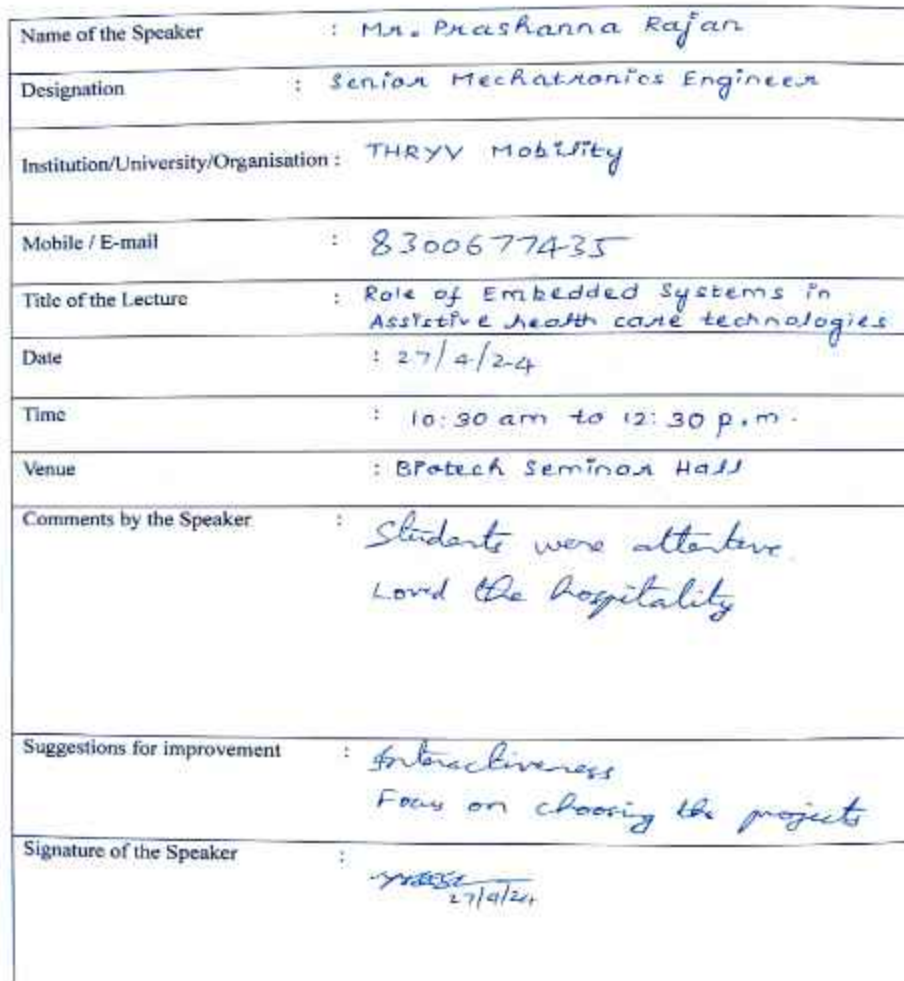 Name of the Speaker : Mr. Prashanna Rajan
Designation : Senior Mechatronics Engineer
Institution/University/Organisation : THRYV Mobility
Mobile / E-mail : 8300677435
Title of the Lecture : Role of Embedded Systems in
Assistive health care technologies
Date : 27/4/24
Time : 10:30 am to 12:30 p.m.
Venue : Biotech Seminar Hall
Comments by the Speaker :
Students were attentive
Loved the hospitality
Suggestions for improvement : Interactiveness
Focus on choosing the projects
Signature of the Speaker :
27/4/24